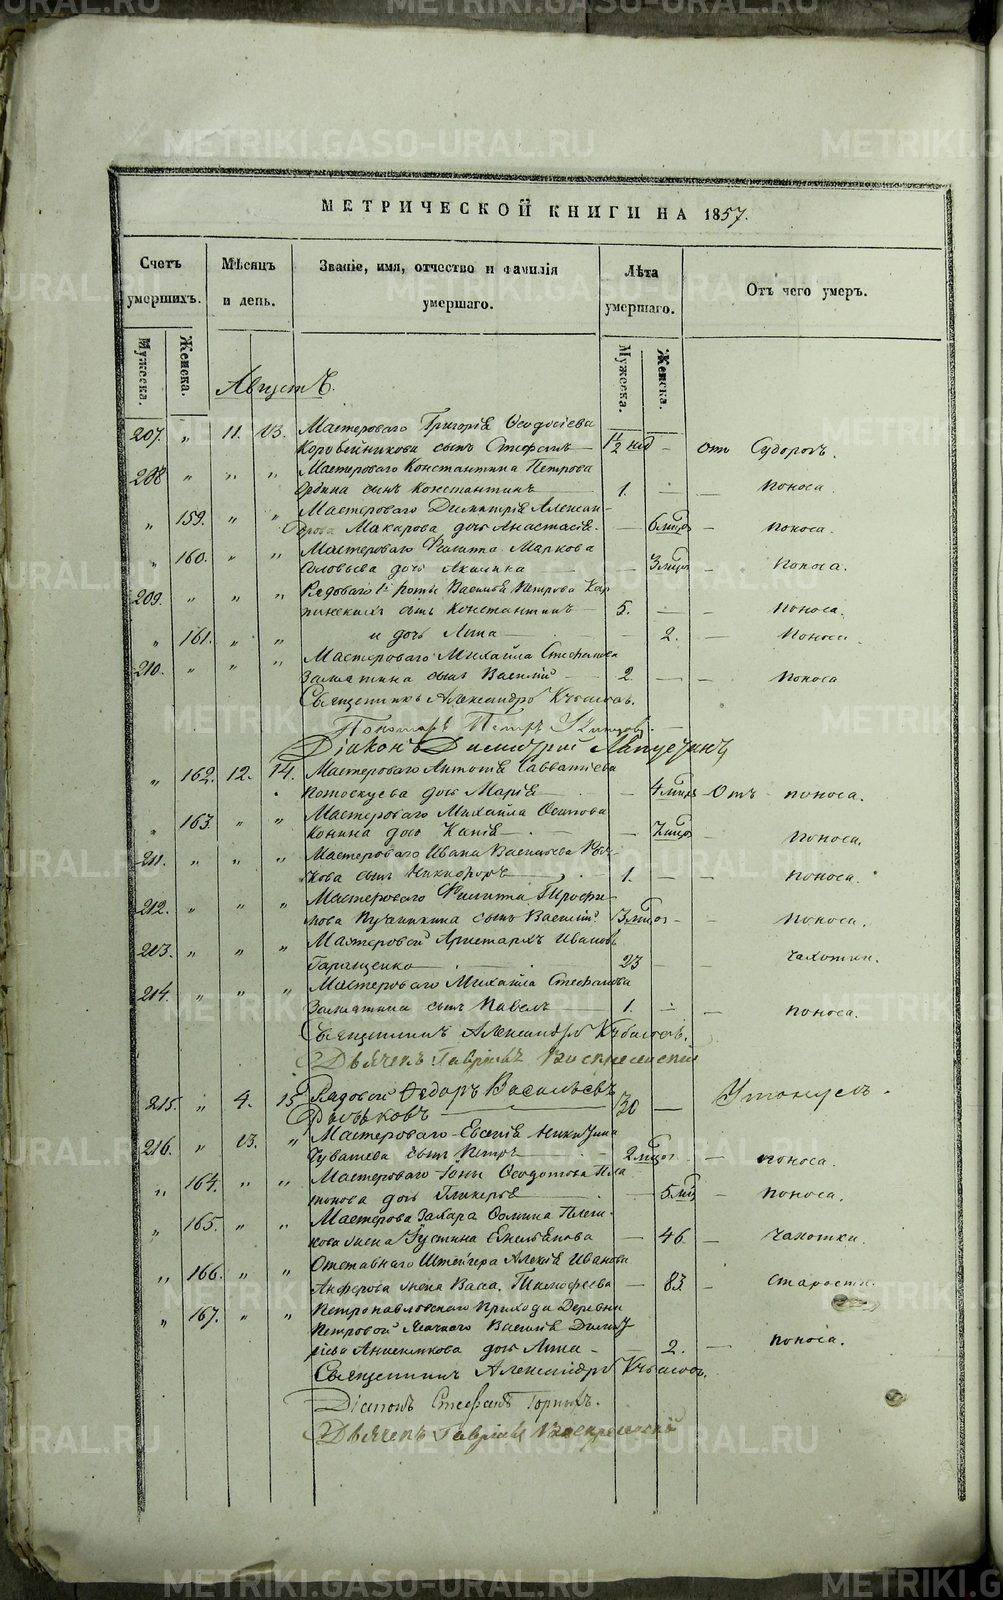 METRIKI.GASO-URAL.RU
МЕТРИЧЕСКОЙ КНИГИ НА 1857.
Счетъ умершихъ.
Мужеска. Женска.
Мѣсяцъ и день.
Званіе, имя, отчество и фамилія умершаго.
Лѣта умершаго.
Мужеска. Женска.
Отъ чего умеръ.
Августъ.
207. " 11. 13. Мастероваго Григорія Ѳеодосіева
Коробейникова сынъ Стефанъ 1½ нед — отъ Судорогъ.
208 " " " Мастероваго Константина Петрова
сынъ Константинъ 1. — — поноса
" 159. " " Мастероваго Димитрія Алексан-
дрова Макарова дочь Анастасія. — 6 мѣс — поноса.
" 160. " " Мастероваго Филипа Маркова
Соловьева дочь Акилина — 3 мѣс — поноса.
209. " " " Рядоваго Василья Петрова Кар
пинскихъ сынъ Константинъ 5. — — поноса.
" 161. " " и дочь Анна — 2. — поноса.
210. " " " Мастероваго Михайла Стефанова
Замятина сынъ Василій 2. — — поноса
Священникъ Александръ
Пономарь Петръ
Діаконъ Димитрій
" 162. 12. 14. Мастероваго Антонія Савватіева
Потоскуева дочь Марія — 4 мѣс — Отъ поноса.
" 163. " " Мастероваго Михайла Осипова
Конина дочь — 7 мѣс — поноса.
211. " " " Мастероваго Ивана Васильева
кова сынъ Никифоръ 1. — — поноса.
212. " " " Мастероваго Филипа Трофи
мова сынъ Василій 3 мѣс — — поноса.
213. " " " Мастеровой Аристархъ Ивановъ
Гаращенко 23 — — чахотки.
214. " " " Мастероваго Михайла Стефанова
Замятина сынъ Павелъ 1. — — поноса.
Священникъ Александръ
Дьячекъ Гавріилъ Воскресенскій
215. " 4. 15 Рядовой Ѳедоръ Васильевъ
Дьяьковъ 30 — Утонулъ.
216. " 13. " Мастероваго Евгенія Никитина
Чувашева сынъ Петръ 2 мѣс — поноса.
" 164. " " Мастероваго Іоны Ѳеодотова Пла
тонова дочь Гликерья — 5 мѣс — поноса.
" 165. " " Мастерова Захара Ѳомина Плеш-
кова жена Устина Емельянова — 46 — чахотки.
" 166. " " Отставнаго Штейгера Алексія Иванова
Анферова жена Васса Тимофеева — 83. — Старости.
" 167. " " Петропавловскаго прихода Деревни
Петровой Василія Димит
ріева дочь Анна — 2. — поноса.
Священникъ Александръ
Діаконъ Стефанъ Горныхъ.
Дьячекъ Гавріилъ Воскресенскій